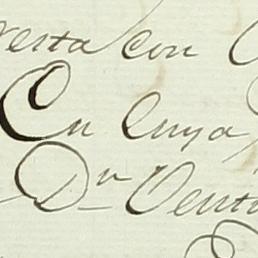 resta con
En cuya
Dn Ventu